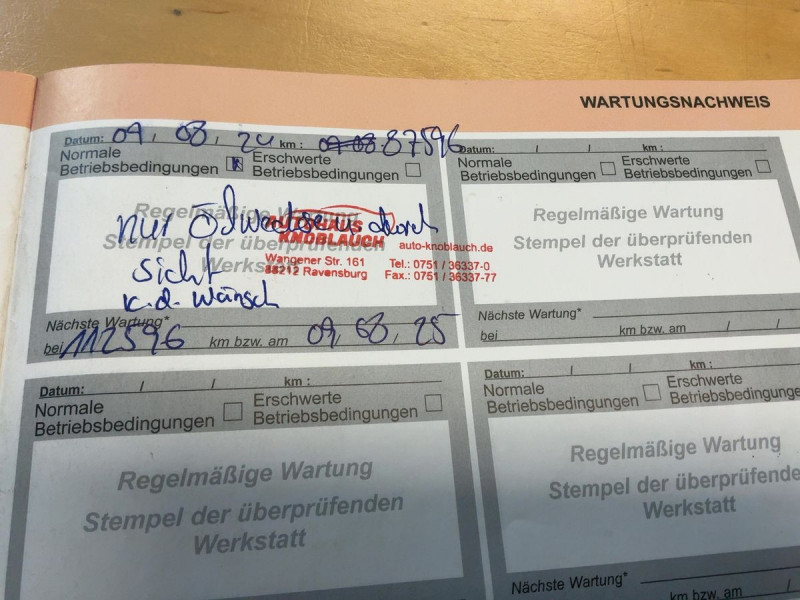 WARTUNGSNACHWEIS
Datum: 09, 08, 24 km: 09 08 87596
Normale Betriebsbedingungen
Erschwerte Betriebsbedingungen
Regelmäßige Wartung
Stempel der überprüfenden
Werkstatt
nur Ölwechsel u durch
sicht
K.d. Wünsch
AUTOHAUS
KNOBLAUCH
auto-knoblauch.de
Wangener Str. 161
88212 Ravensburg
Tel.: 0751 / 36337-0
Fax.: 0751 / 36337-77
Nächste Wartung*
bei 112596 km bzw. am 09, 08, 25
Datum: / / km:
Normale Betriebsbedingungen
Erschwerte Betriebsbedingungen
Regelmäßige Wartung
Stempel der überprüfenden
Werkstatt
Nächste Wartung*
bei km bzw. am / /
Datum: / / km:
Normale Betriebsbedingungen
Erschwerte Betriebsbedingungen
Regelmäßige Wartung
Stempel der überprüfenden
Werkstatt
Datum: / / km:
Normale Betriebsbedingungen
Erschwerte Betriebsbedingungen
Regelmäßige Wartung
Stempel der überprüfenden
Werkstatt
Nächste Wartung*
km bzw. am /